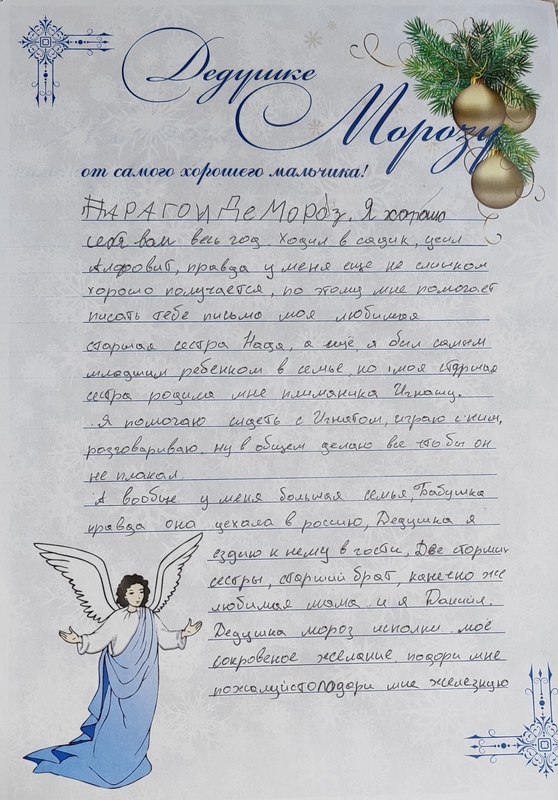 Дедушке
Морозу
от самого хорошего мальчика!
ПАРАГОИ ДЕ МОРОЗ. Я хорошо
себя вёл весь год. Ходил в садик, учил
Алфовит, правда у меня ещё не слишком
хорошо получается, по этому мне помогает
писать тебе письмо моя любимая
старшая сестра Надя, а ещё, я был самым
младшим ребёнком в семье, но моя старшая
сестра родила мне племяника Игнашу.
Я помогаю сидеть с Игнатом, играю с ним,
разговариваю. ну в общем делаю все что бы он
не плакал.
А вообще у меня большая семья, Бабушка
правда она уехала в россию, Дедушка я
ездию к нему в гости, Две старшии
сестры, старший брат, канечно же
любимая мама и я Даниил.
Дедушка мороз исполни моё
сокровеное желание, подари мне
пожалуйсто Подари мне железную